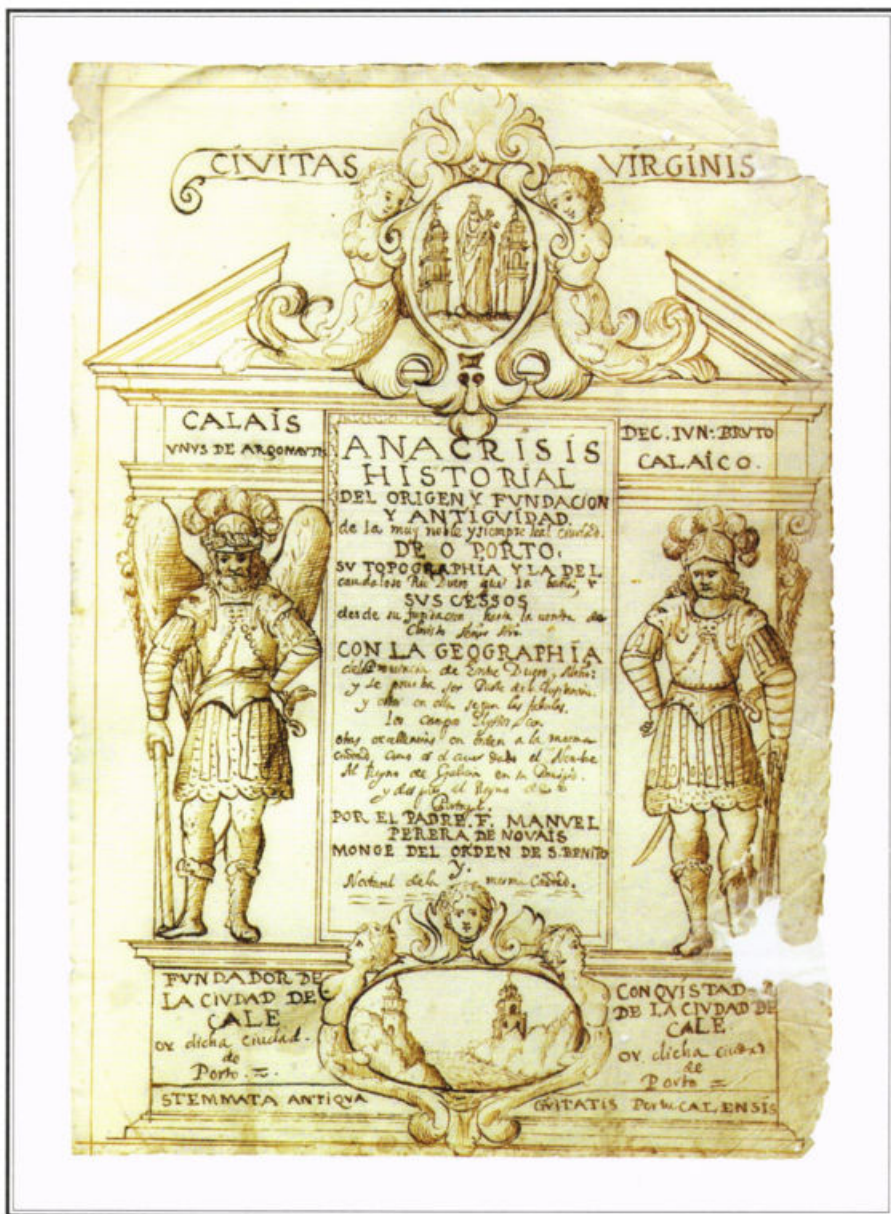 CIVITAS VIRGINIS
CALAIS
VNVS DE ARGONAVTIS
DEC. IVN: BRVTO
CALAICO.
ANACRISIS
HISTORIAL
DEL ORIGEN Y FVNDACION
Y ANTIGVIDAD
de la muy noble y siempre leal ciudad.
DE O PORTO.
SV TOPOGRAPHIA Y LA DEL
caudaloso Rio Duero que la baña, Y
SVSCESSOS
desde su fundacion hasta la venida de
Christo
CON LA GEOGRAPHIA
de Entre Duero y Miño:
y se prueba ser Parte de la
y estar en ella segun las fabulas.
los campos
otras excellencias en orden a la mesma
Ciudad, como el Nombre
Al Reyno de Galicia en
y despues al Reyno de
Portugal.
POR EL PADRE. F. MANVEL
PERERA DE NOVAIS
MONGE DEL ORDEN DE S. BENITO
Y.
Natural de la mesma Ciudad.
FVNDADOR DE
LA CIVDAD DE
CALE
oy dicha ciudad.
de
Porto. =
CONQVISTAD R
DE LA CIVDAD DE
CALE.
oy dicha ciudad
de
Porto =
STEMMATA ANTIQVA CIVITATIS PortuCALENSIS